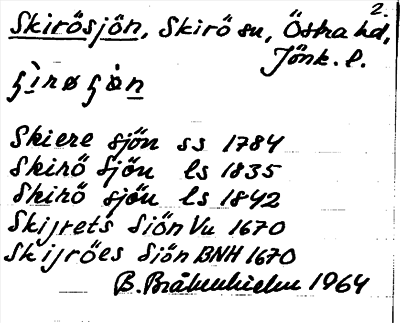 2.
Skirösjön, Skirö sn, Östra hd,
Jönk. l.
ʃìrø ʃɷ̀n
Skiere sjön ss 1784
Skirö Sjön ls 1835
Skirö sjön ls 1842
Skijrets Siön Vu 1670
Skijröes Siön BNH 1670
B. Bråkenhielm 1964